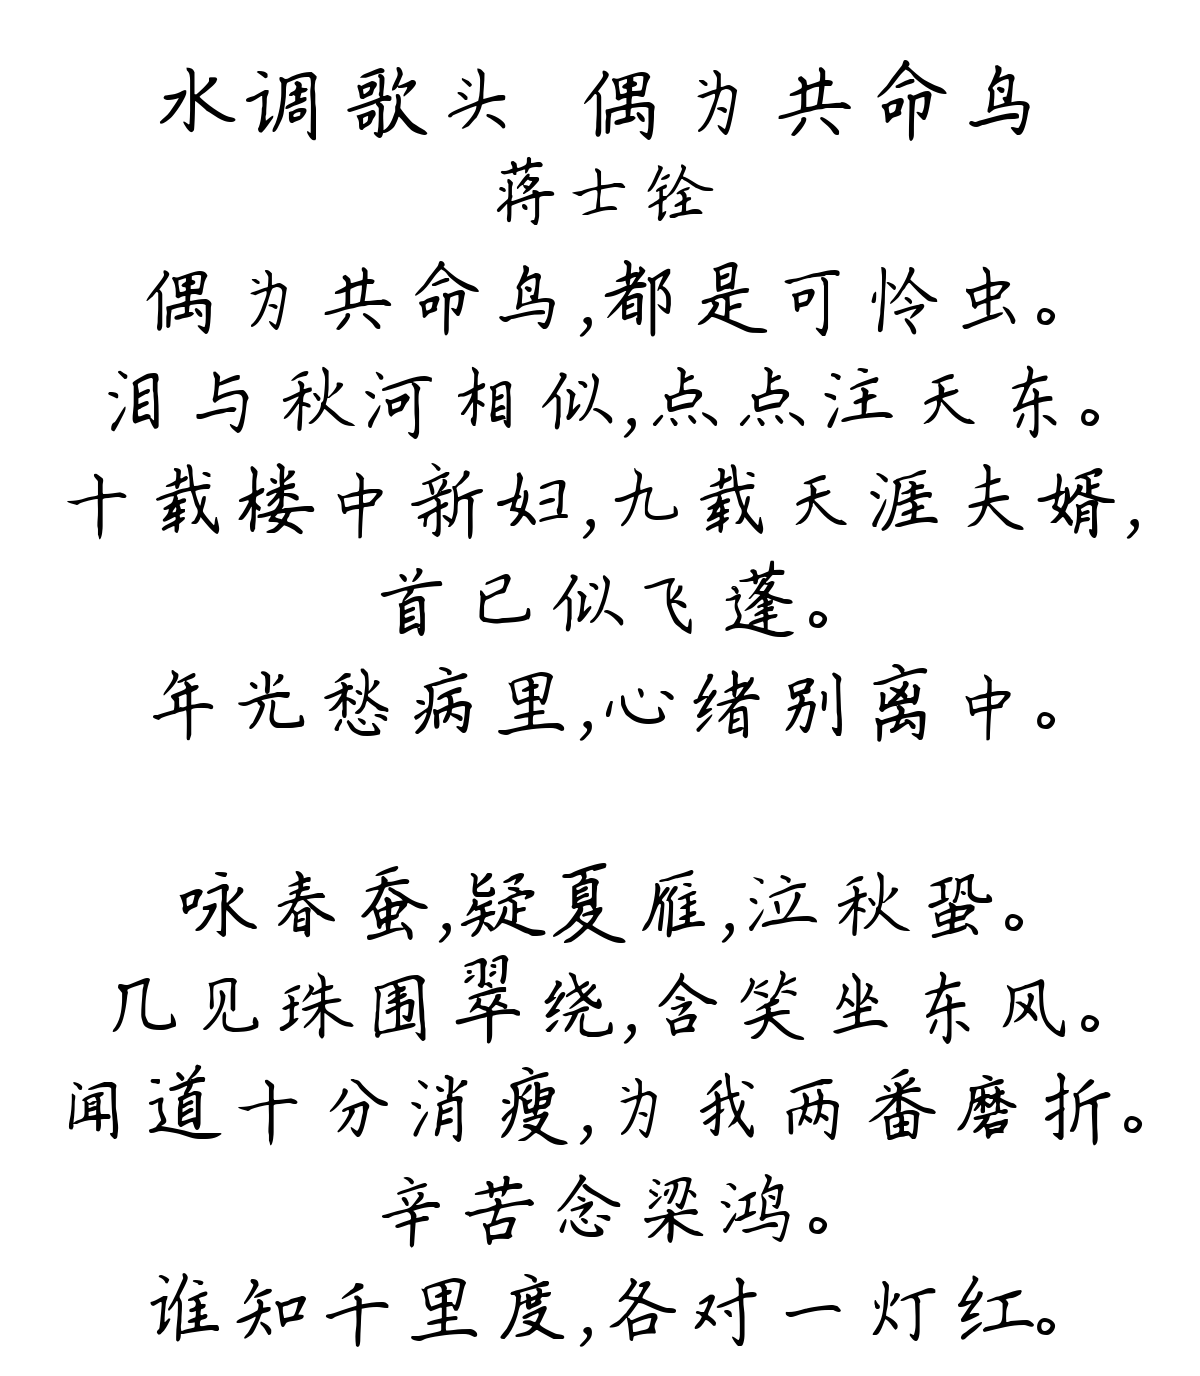 水调歌头 偶为共命鸟
蒋士铨
偶为共命鸟,都是可怜虫。
泪与秋河相似,点点注天东。
十载楼中新妇,九载天涯夫婿,
首已似飞蓬。
年光愁病里,心绪别离中。
咏春蚕,疑夏雁,泣秋蛩。
几见珠围翠绕,含笑坐东风。
闻道十分消瘦,为我两番磨折。
辛苦念梁鸿。
谁知千里度,各对一灯红。